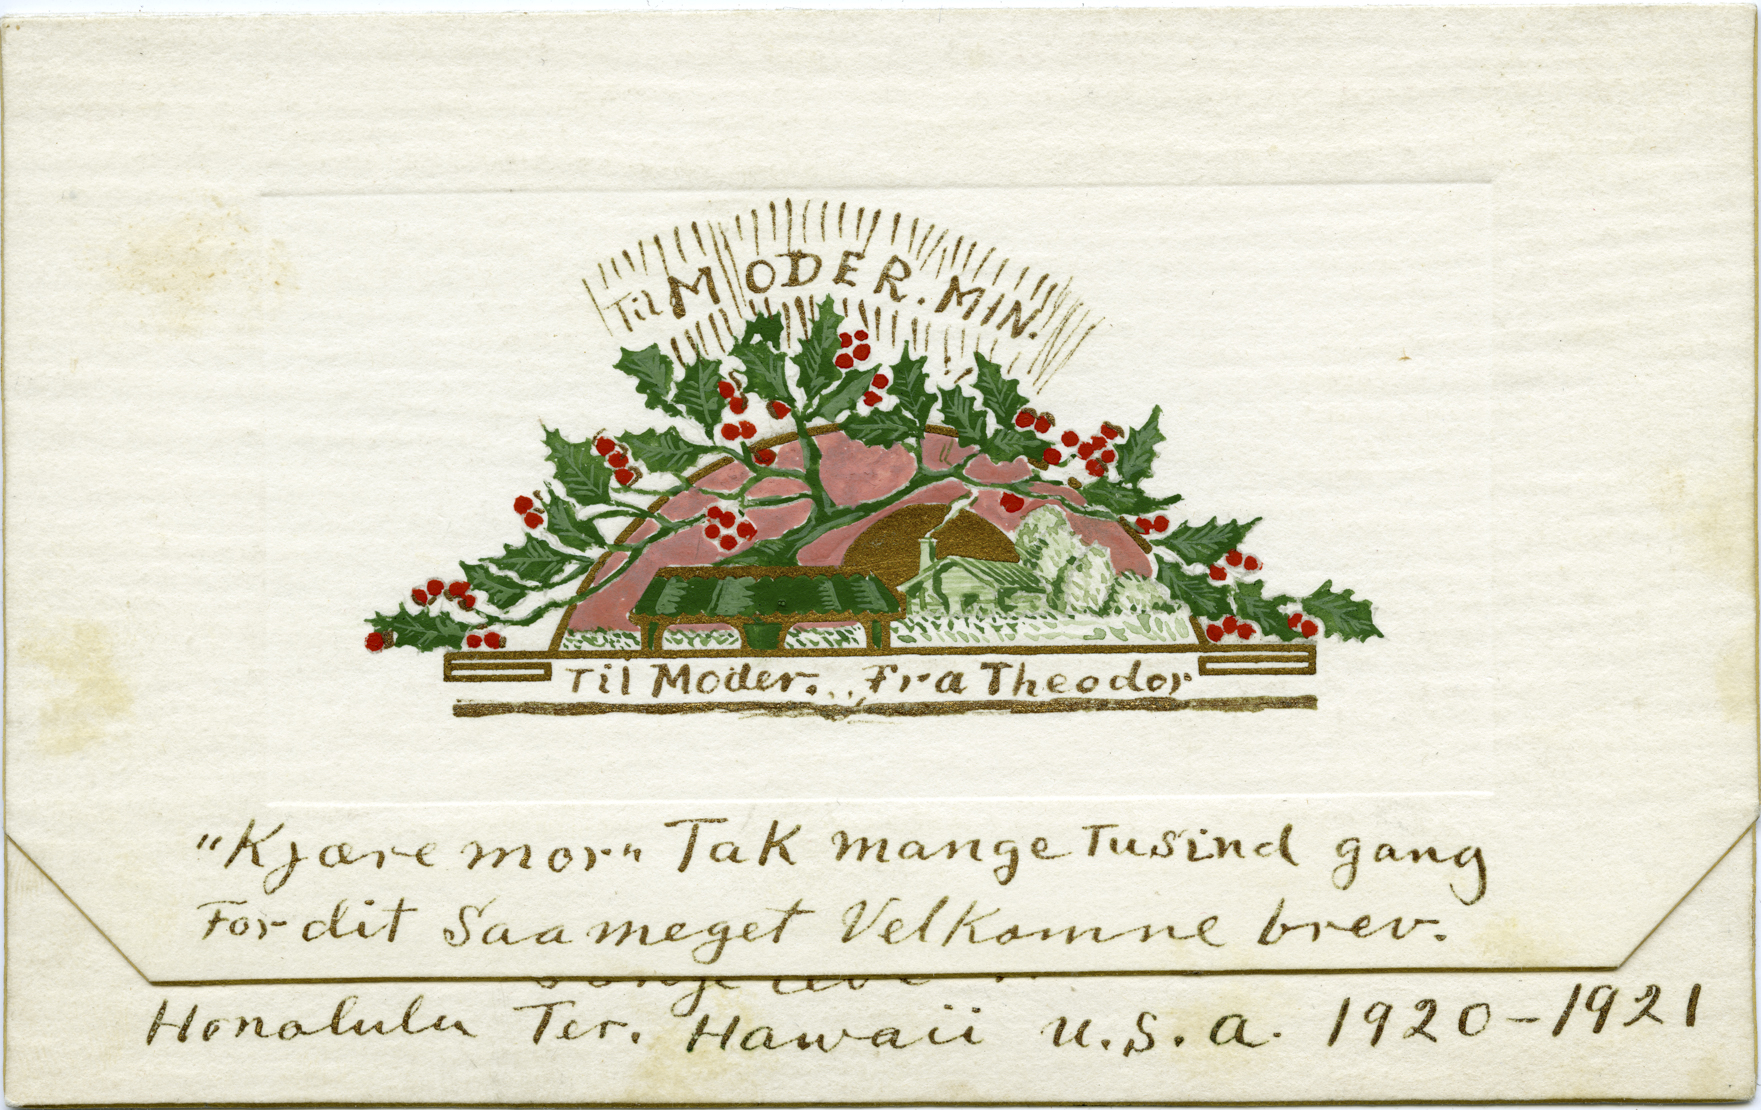 Til MODER. MIN.
Til Moder. Fra Theodor
"Kjære mor" Tak mange Tusind gang
For dit Saameget Velkomne brev.
Honolulu Ter. Hawaii U.S.a. 1920-1921